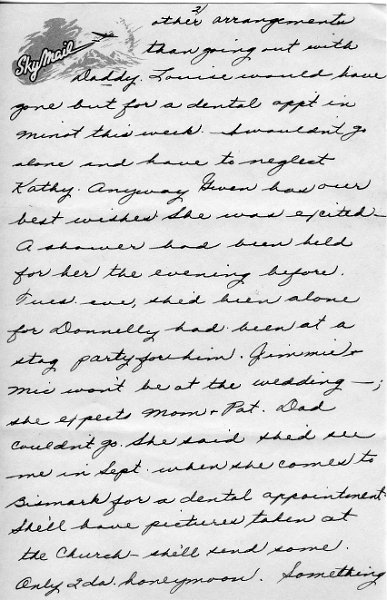 2/
Sky Mail
other arrangements
than going out with
Daddy. Louise would have
gone but for a dental app't in
Minot this week. I wouldn't go
alone and have to neglect
Kathy. Anyway Gwen has our
best wishes She was excited—
A shower had been held
for her the evening before.
Tues. eve, she'd been alone
for Donnelly had been at a
stag party for him. Jimmie +
Mic won't be at the wedding —;
she expects Mom + Pat. Dad
couldn't go. She said she'd see
me in Sept. when she comes to
Bismark for a dental appointment
She'll have pictures taken at
the Church – she'll send some.
Only 2 da. honeymoon. Something